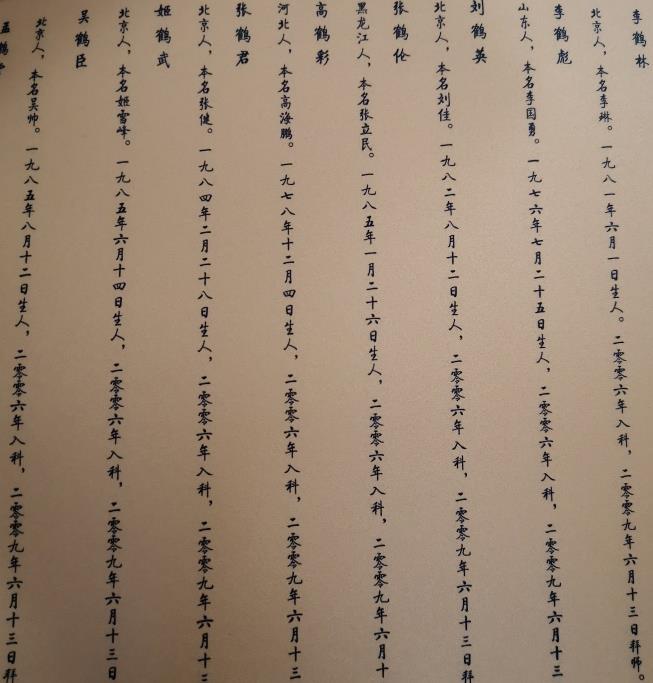 李鹤林
北京人，本名李琳。一九八一年六月一日生人。二零零六年入科，二零零九年六月十三日拜师。
李鹤彪
山东人，本名李国勇。一九七六年七月二十五日生人，二零零六年入科，二零零九年六月十三
刘鹤英
北京人，本名刘佳。一九八二年八月十二日生人，二零零六年入科，二零零九年六月十三日拜
张鹤伦
黑龙江人，本名张立民。一九八五年一月二十六日生人，二零零六年入科，二零零九年六月十
高鹤彩
河北人，本名高海鹏。一九七八年十二月四日生人，二零零六年入科，二零零九年六月十三
张鹤君
北京人，本名张健。一九八四年二月二十八日生人，二零零六年入科，二零零九年六月十三
姬鹤武
北京人，本名姬雪峰。一九八五年六月十四日生人，二零零六年入科，二零零九年六月十三日
吴鹤臣
北京人，本名吴帅。一九八五年八月十二日生人，二零零六年入科，二零零九年六月十三日拜